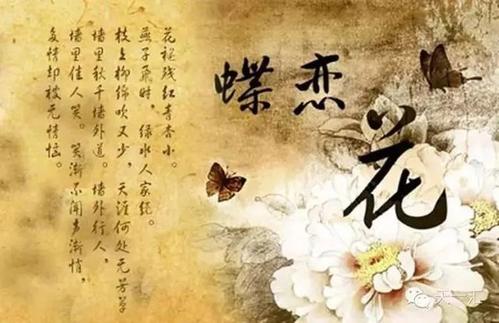 蝶恋花
花褪残红青杏小。
燕子飞时，绿水人家绕。
枝上柳绵吹又少，天涯何处无芳草
墙里秋千墙外道。墙外行人，
墙里佳人笑。笑渐不闻声渐悄，
多情却被无情恼。